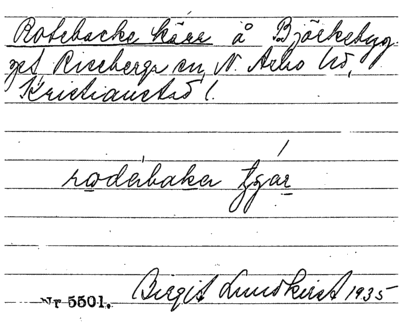 Rotebacke kärr å Björkebyg
get, Riseberga sn, N. Åsbo hd,
Kristianstad l.
rodəbakar tjär
Birgit Lundkvist 1935
Nr 5501.